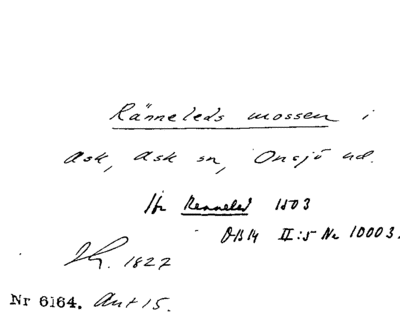 Ränneleds mossen i
Ask, Ask sn, Onsjö hd.
Jfr Renneled 1503
II:5 No 10003.
1827
Nr 6164. Ant 15.